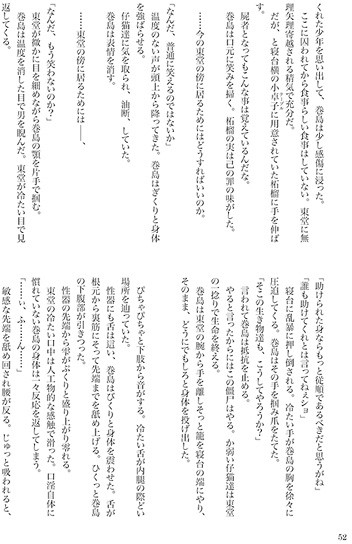 くれた少年を思い出して、巻島は少し感傷に浸った。
ここに囚われてから食事らしい食事はしていない。東堂に無
理矢理寄越される精気で充分だ。
だが、と寝台横の小卓子に用意されていた柘榴に手を伸ば
す。
屍者となってもこんな事は覚えているんだな。
巻島は口元に笑みを掃く。柘榴の実は己の罪の味がした。
……今の東堂の傍に居るためにはどうすればいいのか。
「なんだ、普通に笑えるのではないか」
温度のない声が頭上から降ってきた。巻島はぎくりと身体
を強ばらせる。
仔猫達に気を取られ、油断、していた。
巻島は表情を消す。
……東堂の傍に居るためには――、
「なんだ、もう笑わないのか？」
東堂が微かに目を細めながら巻島の顎を片手で掴む。
巻島は温度を消した目で男を睨んだ。東堂が冷たい目で見
返してくる。
「助けられた身ならもっと従順であるべきだと思うがね」
「誰も助けてくれとは言ってねぇショ」
寝台に乱暴に押し倒される。冷たい手が巻島の胸を徐々に
圧迫してくる。巻島はその手を掴み爪をたてた。
「そこの生き物達も、こうしてやろうか？」
言われて巻島は抵抗を止める。
やると言ったからにはこの男はやる。か弱い仔猫達は東堂
の一捻りで生命を終える。
巻島は東堂の腕から手を離しそっと籠を寝台の端にやり、
そのまま、どうにでもしろと身体を投げ出した。
ぴちゃぴちゃと下肢から音がする。冷たい舌が内腿の際どい
場所を辿っていた。
性器にも舌は這い、巻島はびくりと身体を震わせた。舌が
根元から裏筋にそって先端までを舐め上げる。ひくっと巻島
の下腹部が引きつった。
性器の先端から雫がぷくりと盛り上がり零れる。
東堂の冷たい口中は人工物的な感触で滑った。口淫自体に
慣れていない巻島の身体は一々反応を返してしまう。
敏感な先端を舐め回され腰が反る。じゅっと吸われると、
52